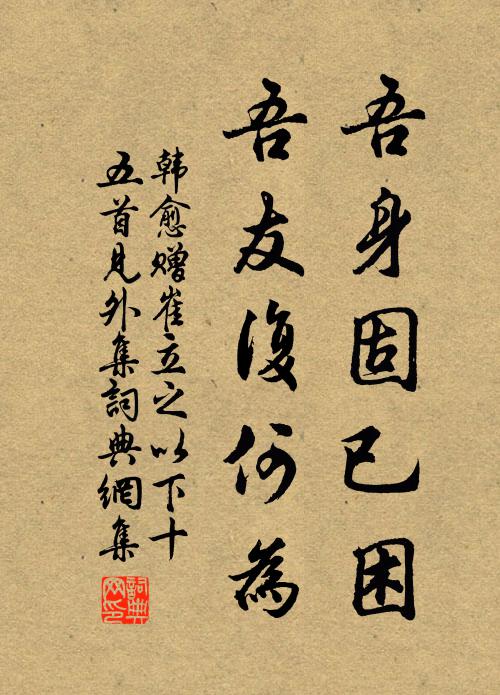 吾身固已困
吾友復何為
韩愈赠崔立之以下十
五首見外集詞典網集
詞典
网印